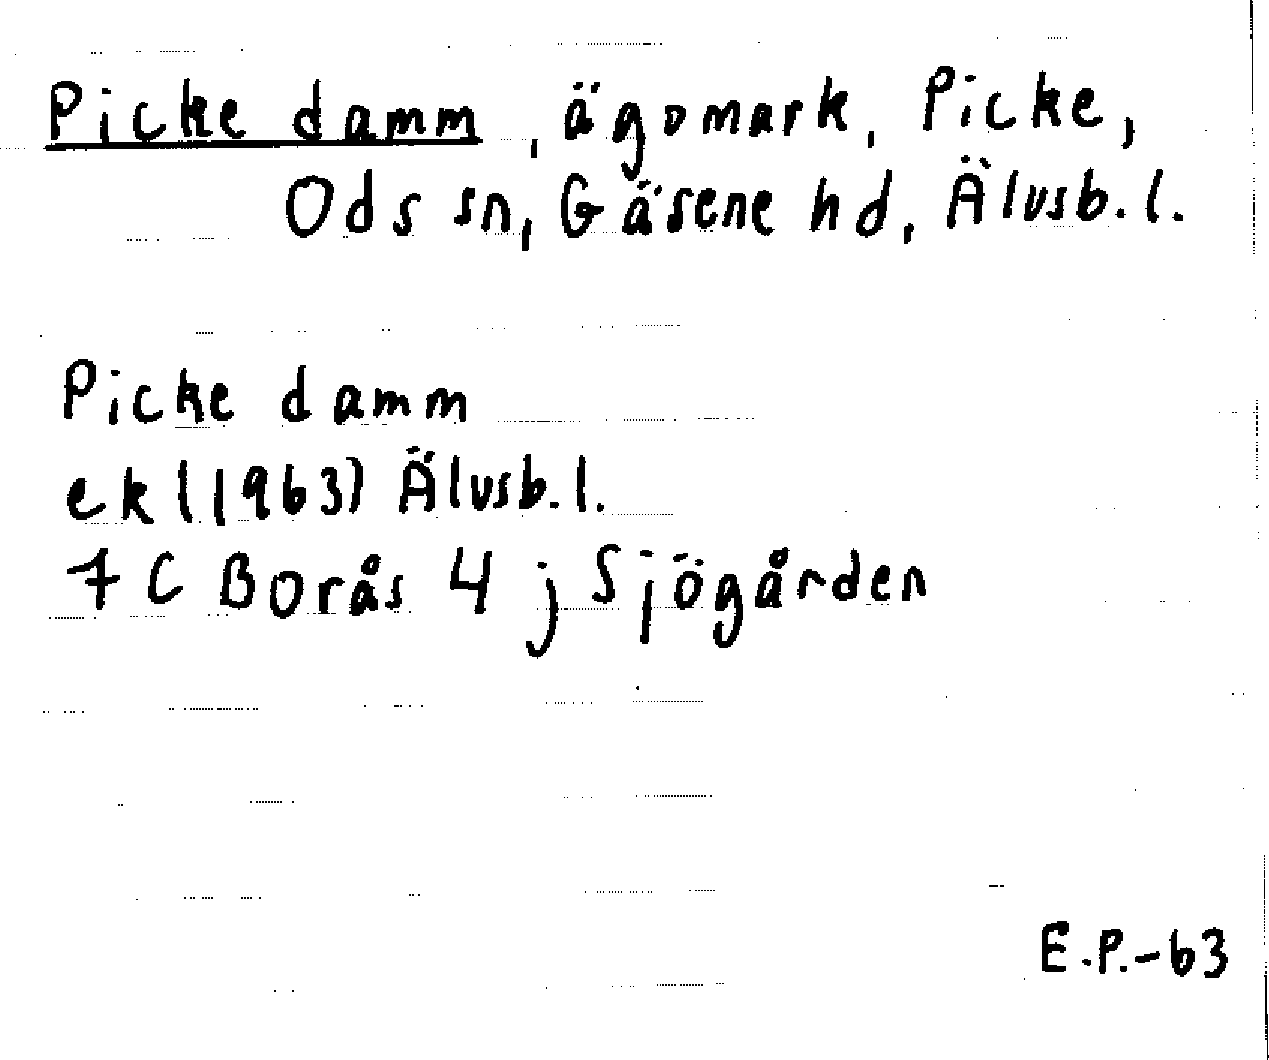 Picke damm, ägomark, Picke,
Ods sn, Gäsene hd, Älvsb.l.
Picke damm
ekl (1963) Älvsb.l.
7 C Borås 4 j Sjögården
E.P.-63